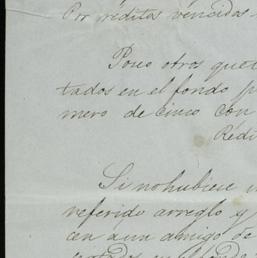 Por réditos vencidos
Pono otros que
tados en el fondo p
mero de cinco con
Rédi
Si no hubiere
referido arreglo y
cen a un amigo de